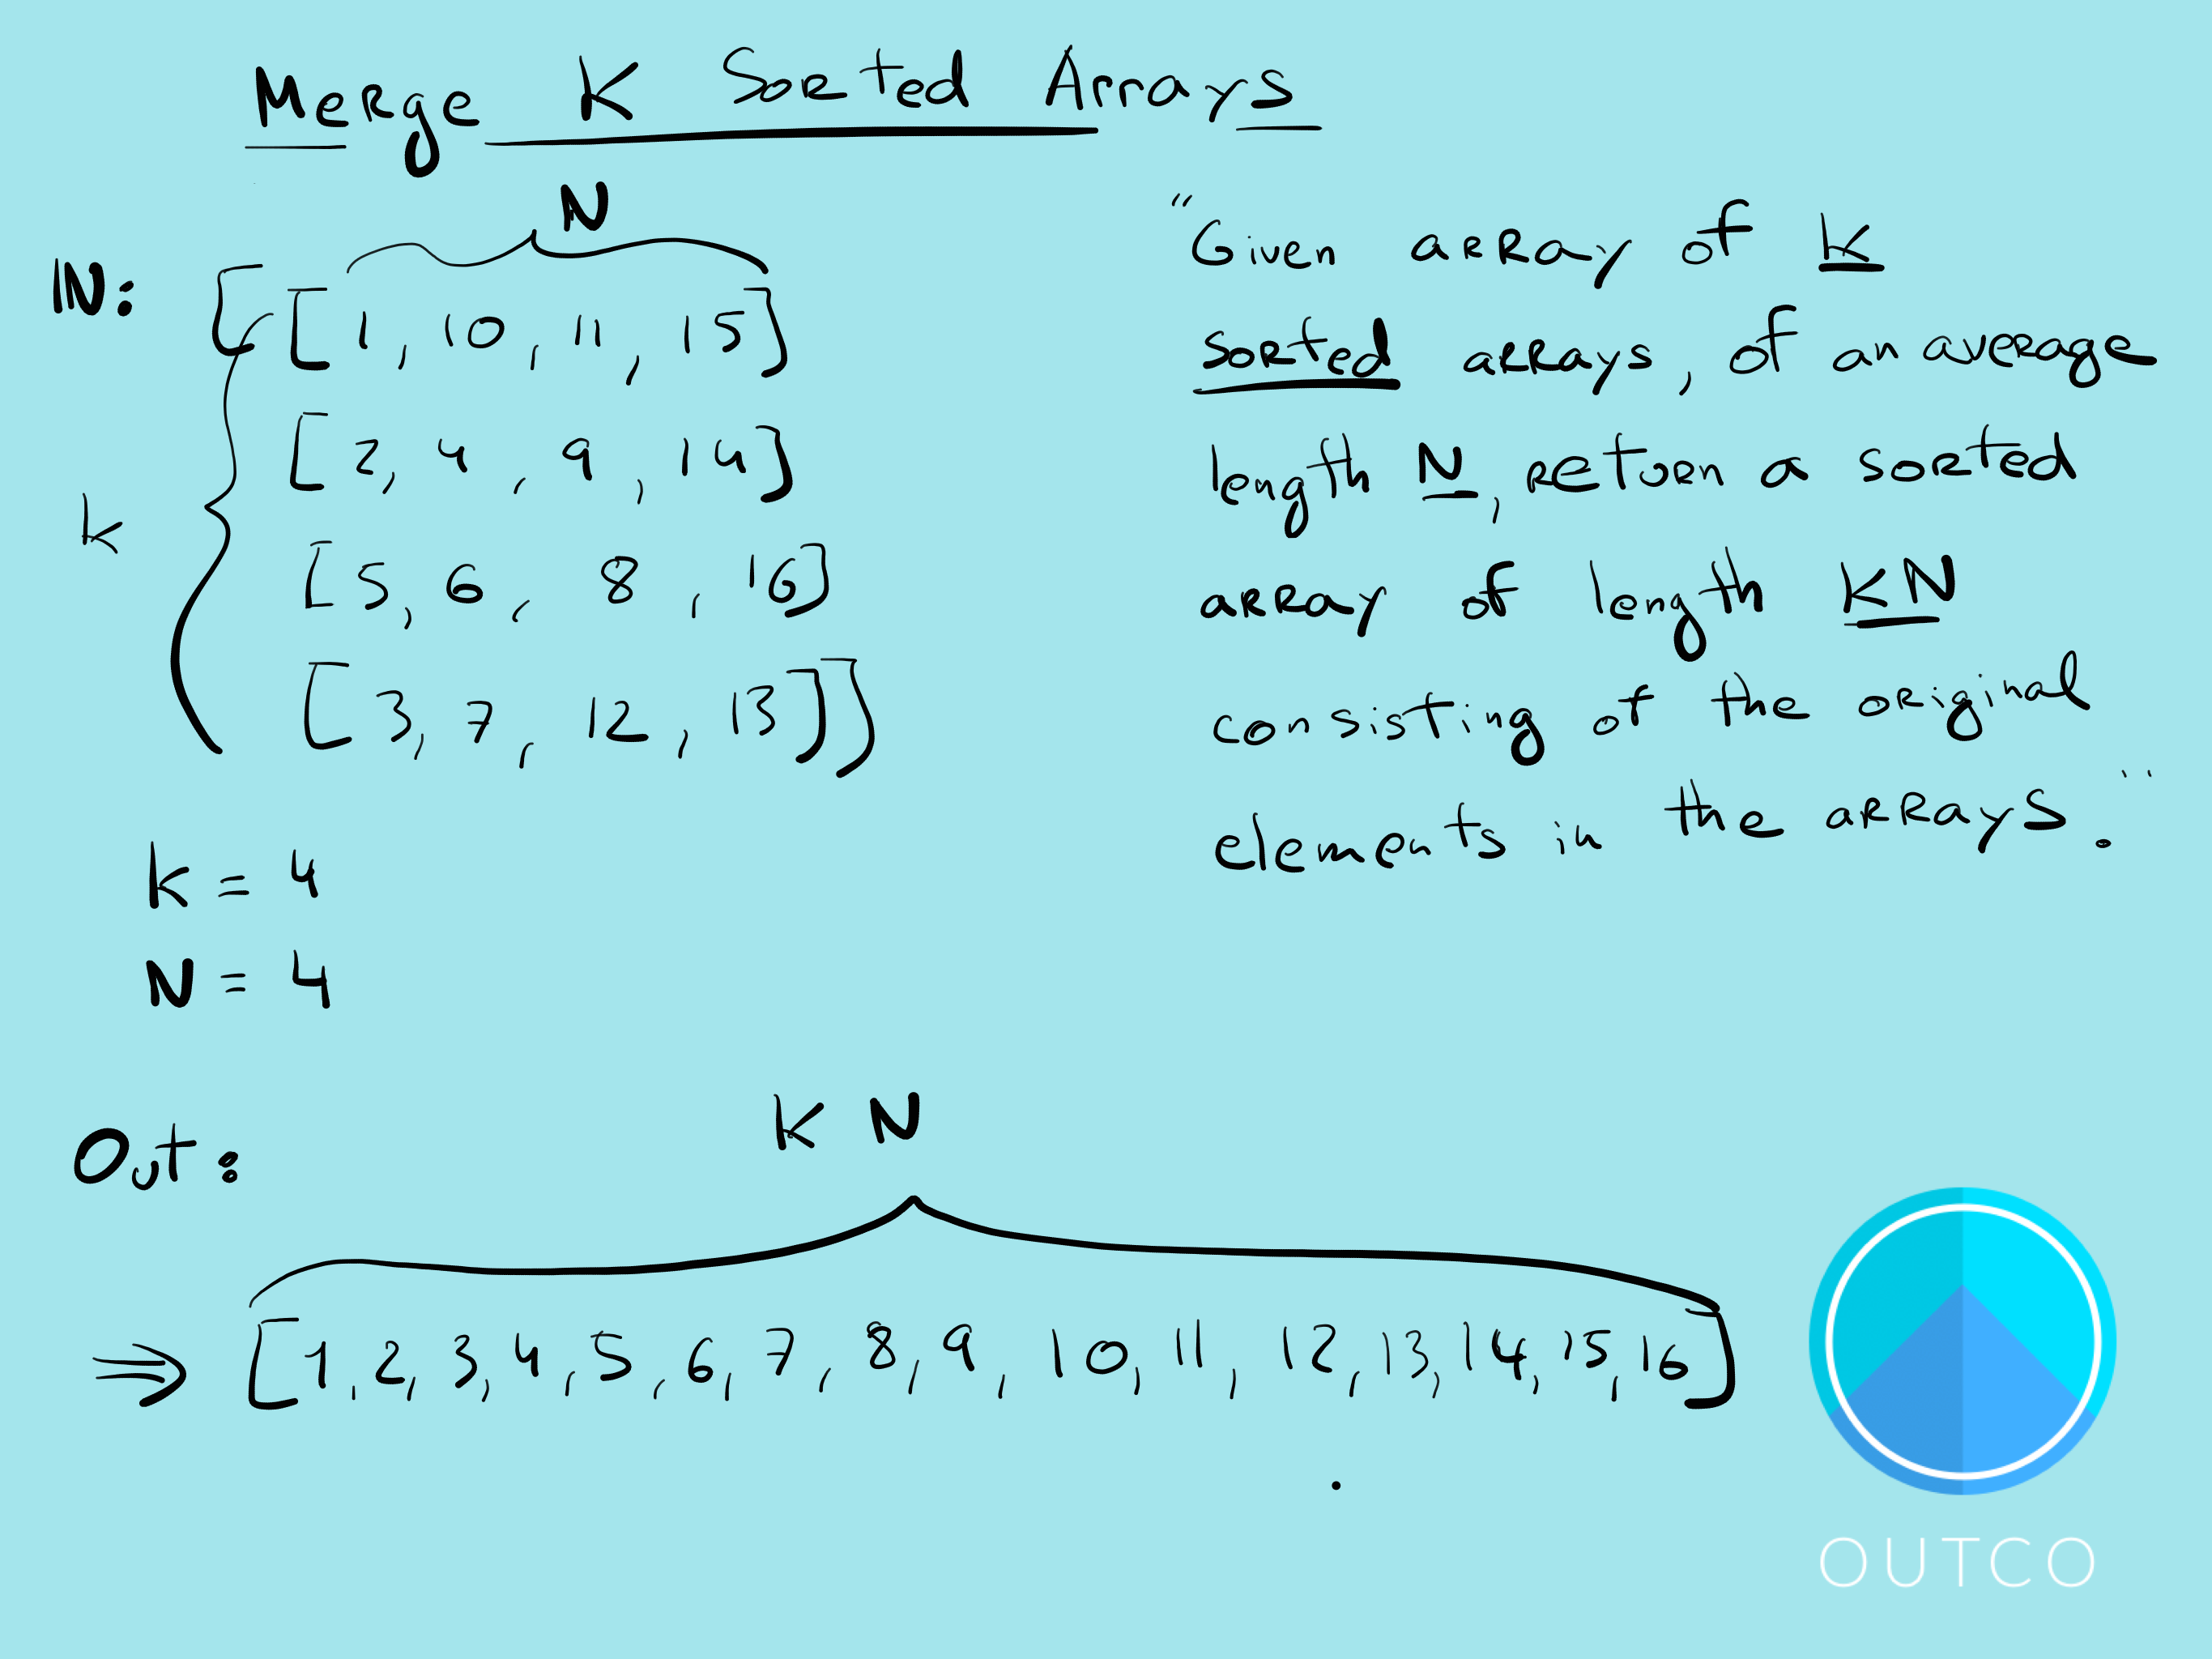 Merge K Sorted Arrays
N
IN:
[ [ 1, 10, 11, 15]
[ 2, 4, 9, 14]
K
[ 5, 6, 8, 16]
[ 3, 7, 12, 13]]
K = 4
N = 4
"Given array of K
sorted arrays, of an average
length N, return a sorted
array of length KN
consisting of the original
elements in the arrays."
KN
Out:
⇒ [1, 2, 3, 4, 5, 6, 7, 8, 9, 10, 11, 12, 13, 14, 15, 16]
OUTCO